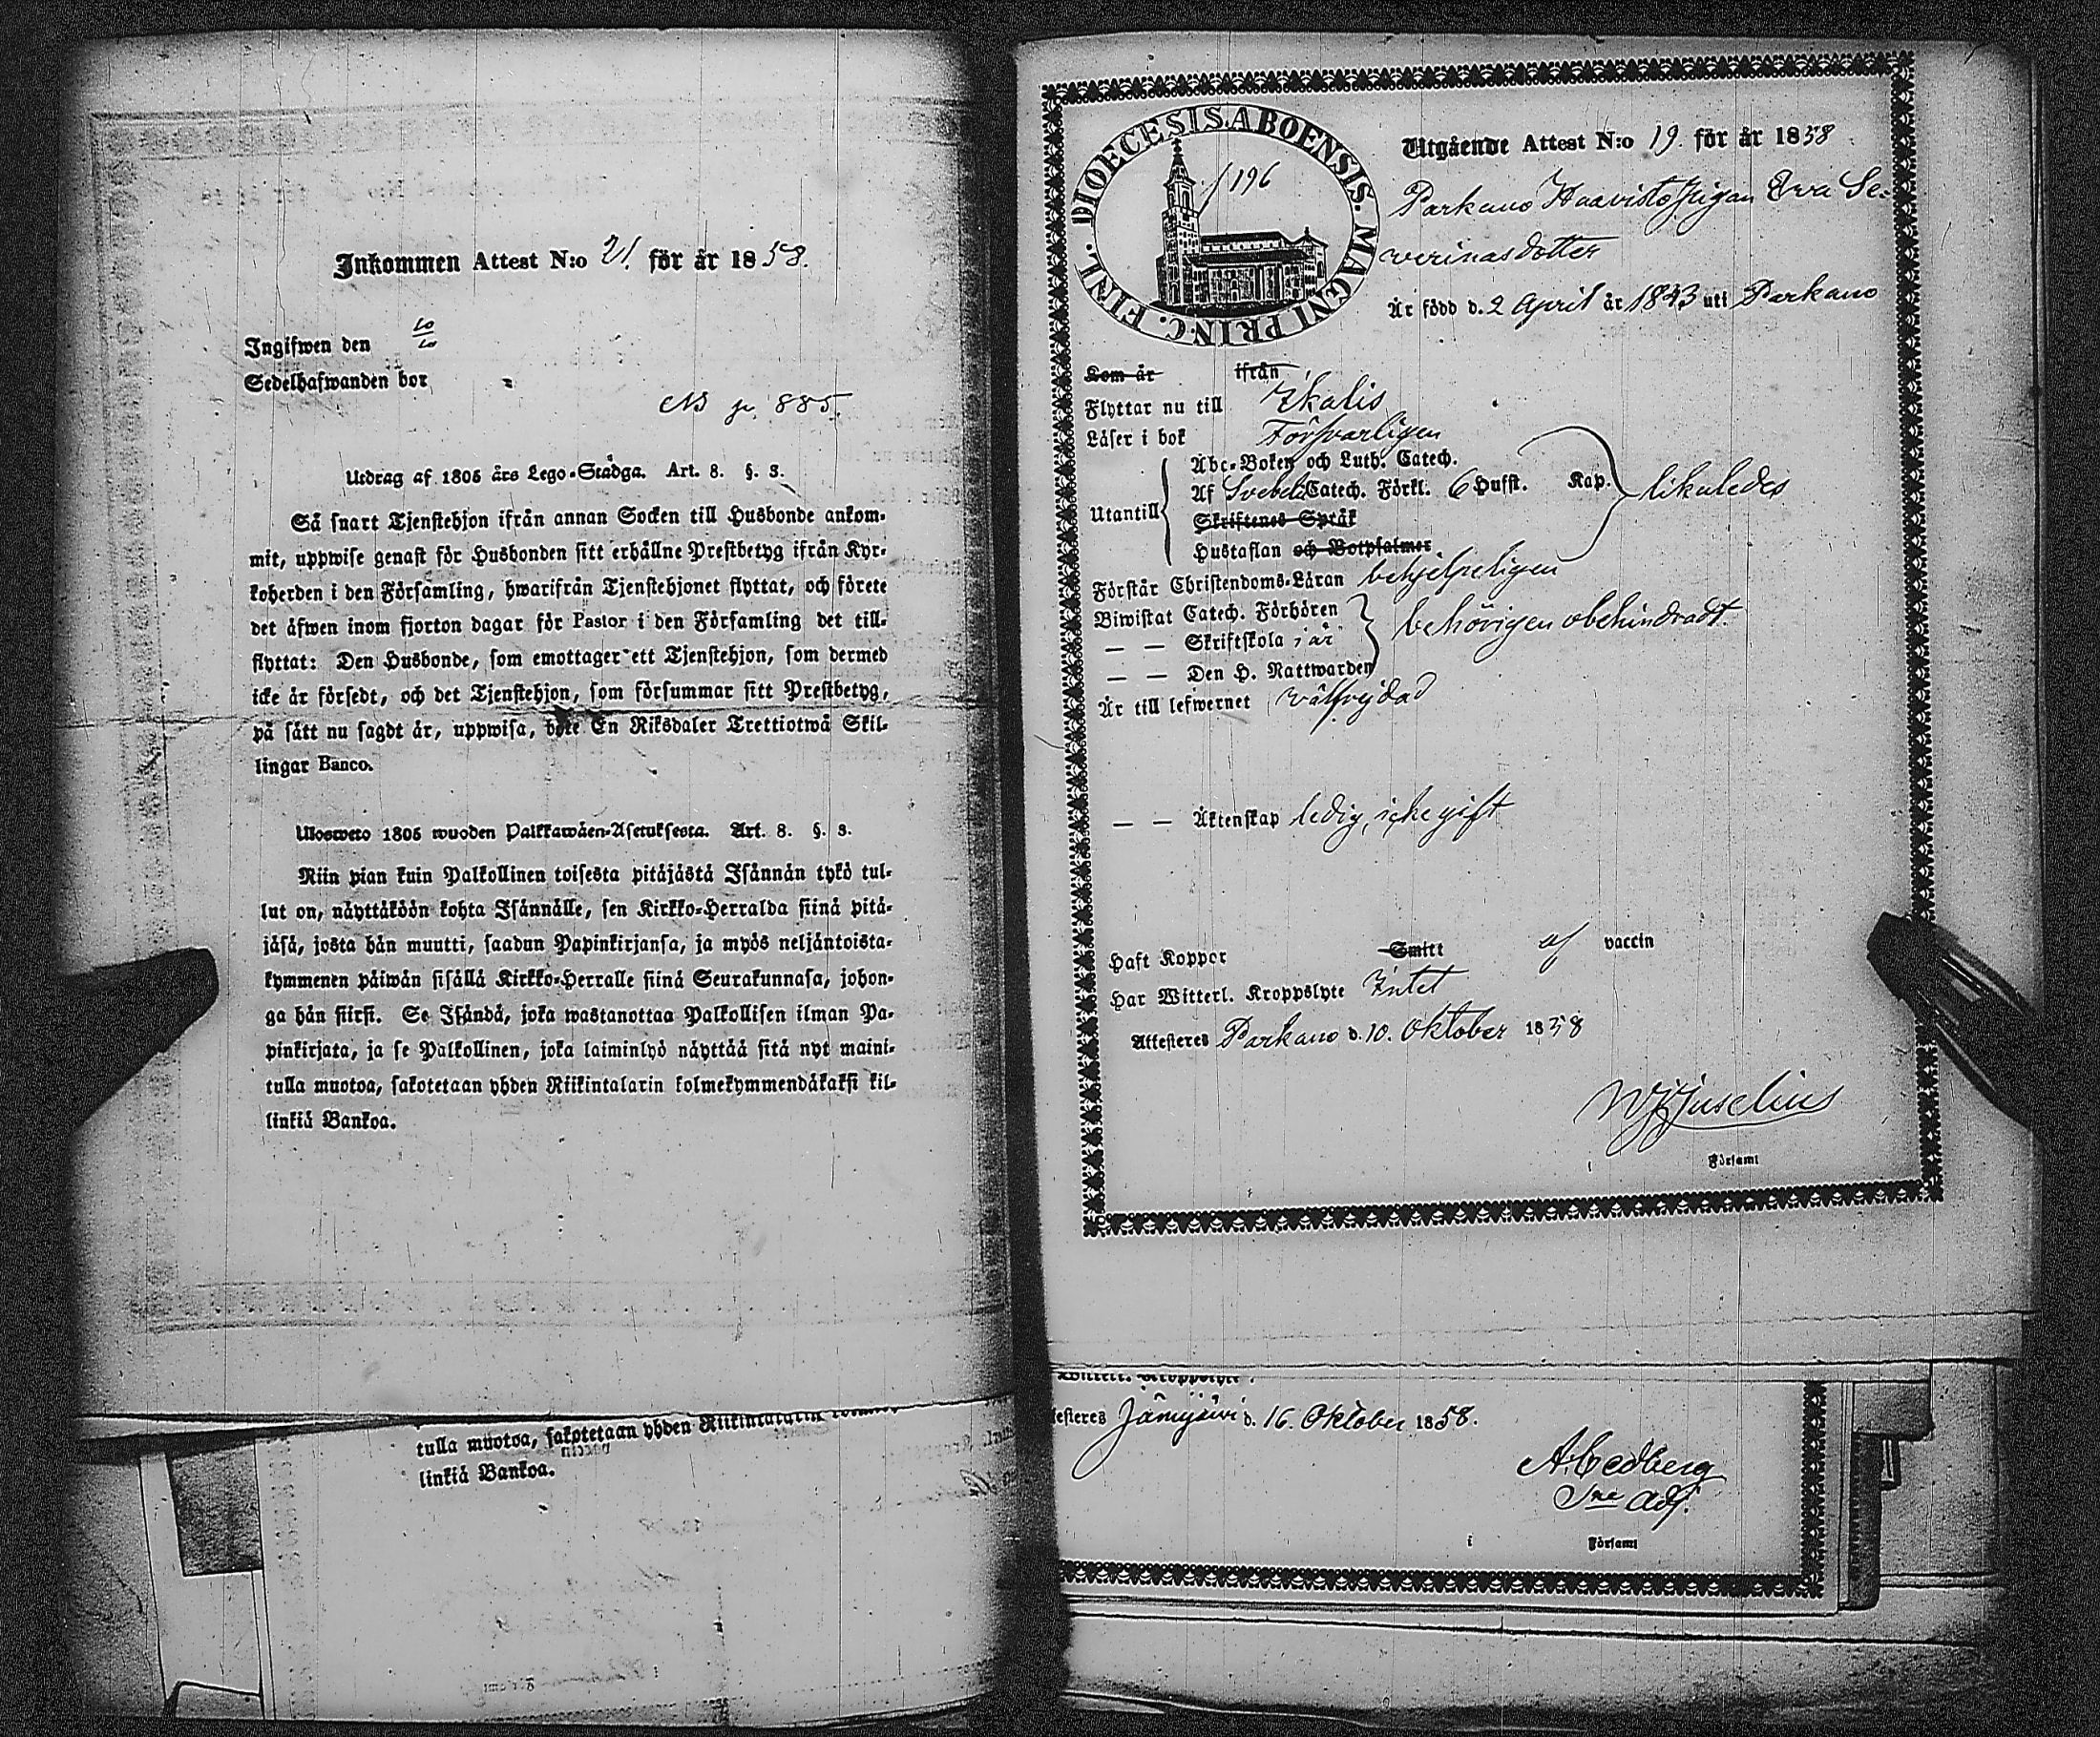 Inkommen Attest N:o 21. för år 1858.
Ingifwen den 10/10
Sedelhafwanden bor
NB p. 885.
Utdrag af 1805 års Lego-Stadga. Art. 8. §. 3.
Så snart Tjenstehjon ifrån annan Socken till Husbonde ankom-
mit, uppwise genast för Husbonden sitt erhållne Prestbetyg ifrån Kyr-
koherden i den Församling, hwarifrån Tjenstehjonet flyttat, och förete
det äfwen inom fjorton dagar för Pastor i den Församling det till-
flyttat: Den Husbonde, som emottager ett Tjenstehjon, som dermed
icke är försedt, och det Tjenstehjon, som försummar sitt Prestbetyg,
på sätt nu sagdt är, uppwisa, böte En Riksdaler Trettiotwå Skil-
lingar Banco.
Ulosweto 1805 wuoden Palkkawäen-Asetuksesta. Art. 8. §. 3.
Niin pian kuin Palkollinen toisesta pitäjästä Isännän tykö tul-
lut on, näyttäköön kohta Isännälle, sen Kirkko-Herralda siinä pitä-
jäsä, josta hän muutti, saadun Papinkirjansa, ja myös neljäntoista-
kymmenen päiwän sisällä Kirkko-Herralle siinä Seurakunnasa, johon-
ga hän siirsi. Se Isändä, joka wastanottaa Palkollisen ilman Pa-
pinkirjata, ja se Palkollinen, joka laiminlyö näyttää sitä nyt maini-
tulla muotoa, sakotetaan yhden Riikintalarin kolmekymmendäkaksi kil-
linkiä Bankoa.
tulla muotoa, sakotetaan yhden Riikintalarin
linkiä Bankoa.
DIOECESIS ABOENSIS. MAGNI PRINC. FINL.
196
Utgående Attest N:o 19. för år 1858
Parkano Haavisto Pigan Eva Se-
verinasdotter
Är född d. 2 April år 1843 uti Parkano
Kom år ifrån
Flyttar nu till Ikalis
Läser i bok Försvarligen
Utantill
Abc-Boken och Luth. Catech.
Af Svebeli Catech. Förkl. 6 Hufst. Kap. likaledes
Skriftenes Språk
Hustaflan och Botpsalmer
Förstår Christendoms-Läran behjelpeligen
Biwistat Catech. Förhören
— — Skriftskola 1 år behörigen obehindradt.
— — Den H. Nattwarden
Är till lefwernet välfrejdad
— — Äktenskap ledig, icke gift
Haft Koppor Smitt af vaccin
Har Witterl. Kroppslyte Intet
Attesteres Parkano d. 10. Oktober 1858
Juselius
i Församl
Witterl. Kroppslyte
testeres Jämijärvi d. 16. Oktober 1858.
A. Cedberg
Sne Adj.
i Församl